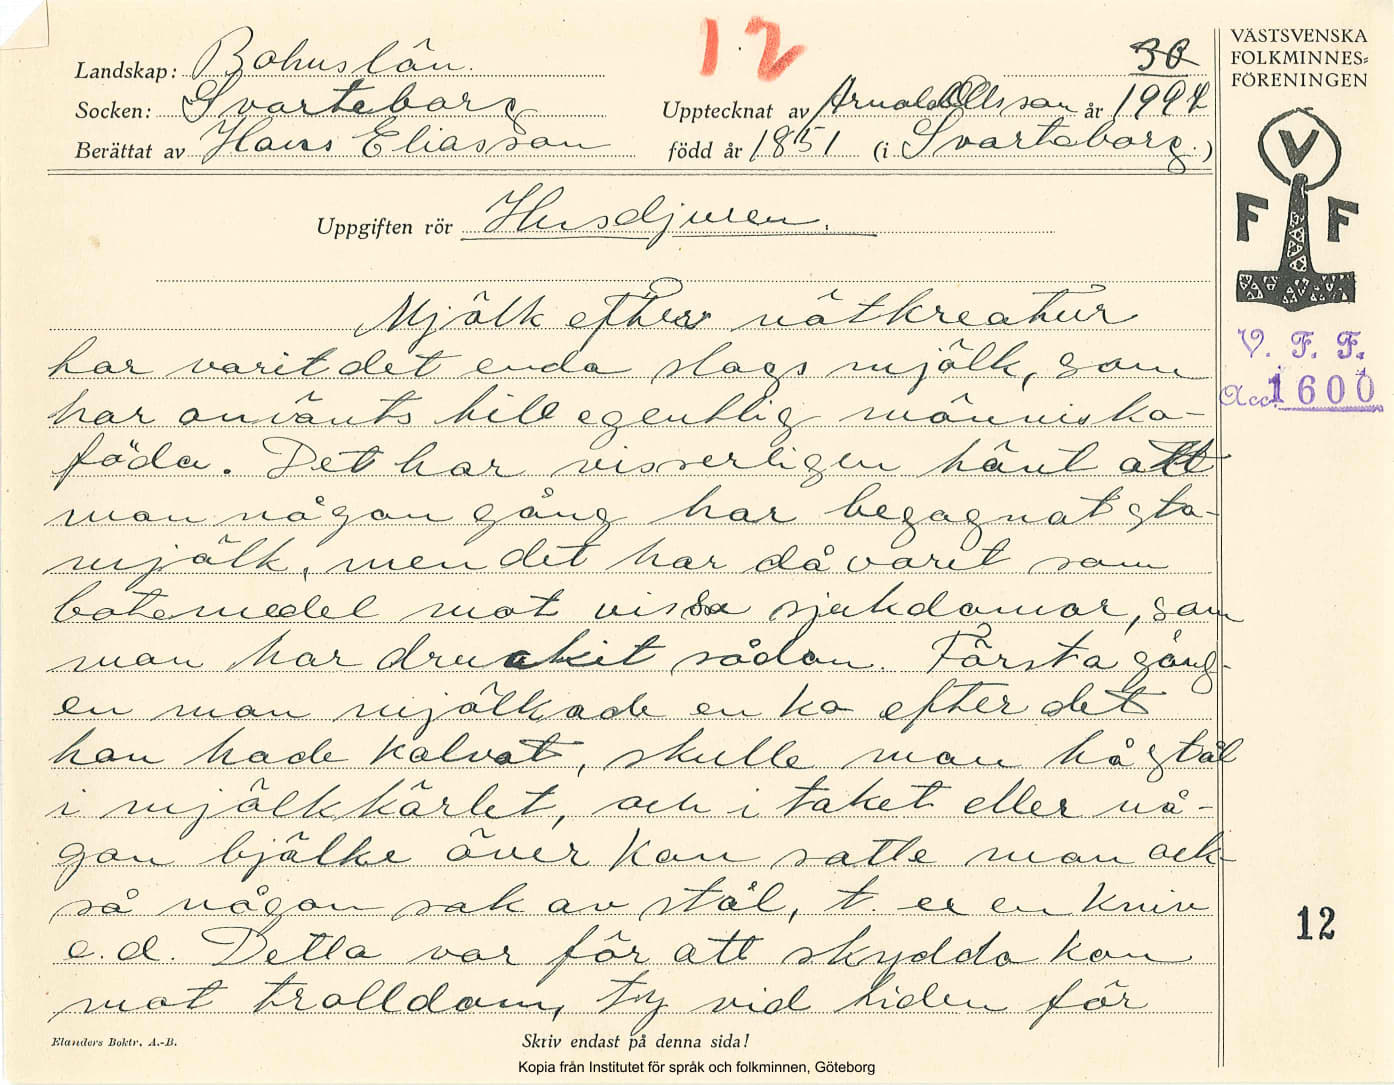 12
30
VÄSTSVENSKA
FOLKMINNES-
FÖRENINGEN
Landskap: Bohuslän.
Socken: Svarteborg Upptecknat av Arnold Olsson år 1924
Berättat av Hans Eliasson född år 1851 (i Svarteborg.)
V
F F
Uppgiften rör Husdjuren.
V. F. F.
Acc. 1600
Mjölk efter nötkreatur
har varit det enda slags mjölk, som
har använts till egentlig människo-
föda. Det har visserligen hänt att
man någon gång har begagnat sto-
mjölk, men det har då varit som
botemedel mot vissa sjukdomar, som
man har druckit sådan. Första gång-
en man mjölkade en ko efter det
hon hade kalvat, skulle man hå stål
i mjölkkärlet, och i taket eller nå-
gon bjälke över kon satte man ock-
så någon sak av stål, t. ex en kniv
e.d. Detta var för att skydda kon
mot trolldom, ty vid tiden för
12
Elanders Boktr. A.-B.
Skriv endast på denna sida!
Kopia från Institutet för språk och folkminnen, Göteborg